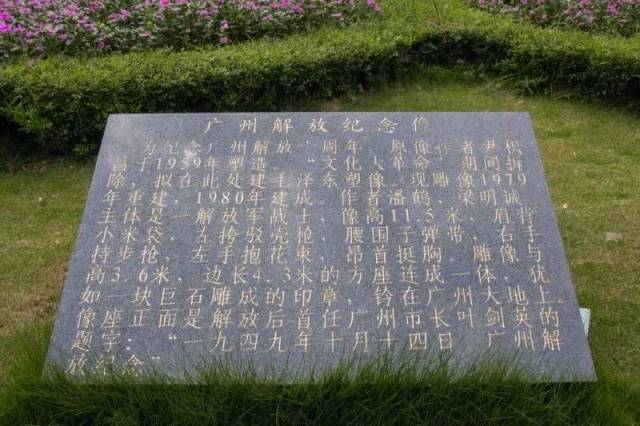 广州解放纪念像
为纪念广州解放 周年 原像作者尹积
昌于1959年塑造。“文化大革命”间拆
除,拟在此处建毛泽东塑像。现雕像1979
年重建,1980年建成。作者潘鹤、梁明诚
主体是一解放军战士,像高11.5米,肩背
小米袋,左挎驳壳枪,腰围子弹带,右手
持步枪,左手抱花束,昂首挺胸。雕像与
高3.6米,边长4.3米的方座连成一体,犹
如一块巨石雕成的印章,钤在广州大地上。
像座正面是解放后首任广州市长叶剑英的
题字:“一九四九年十月十四日 广州解
放纪念”